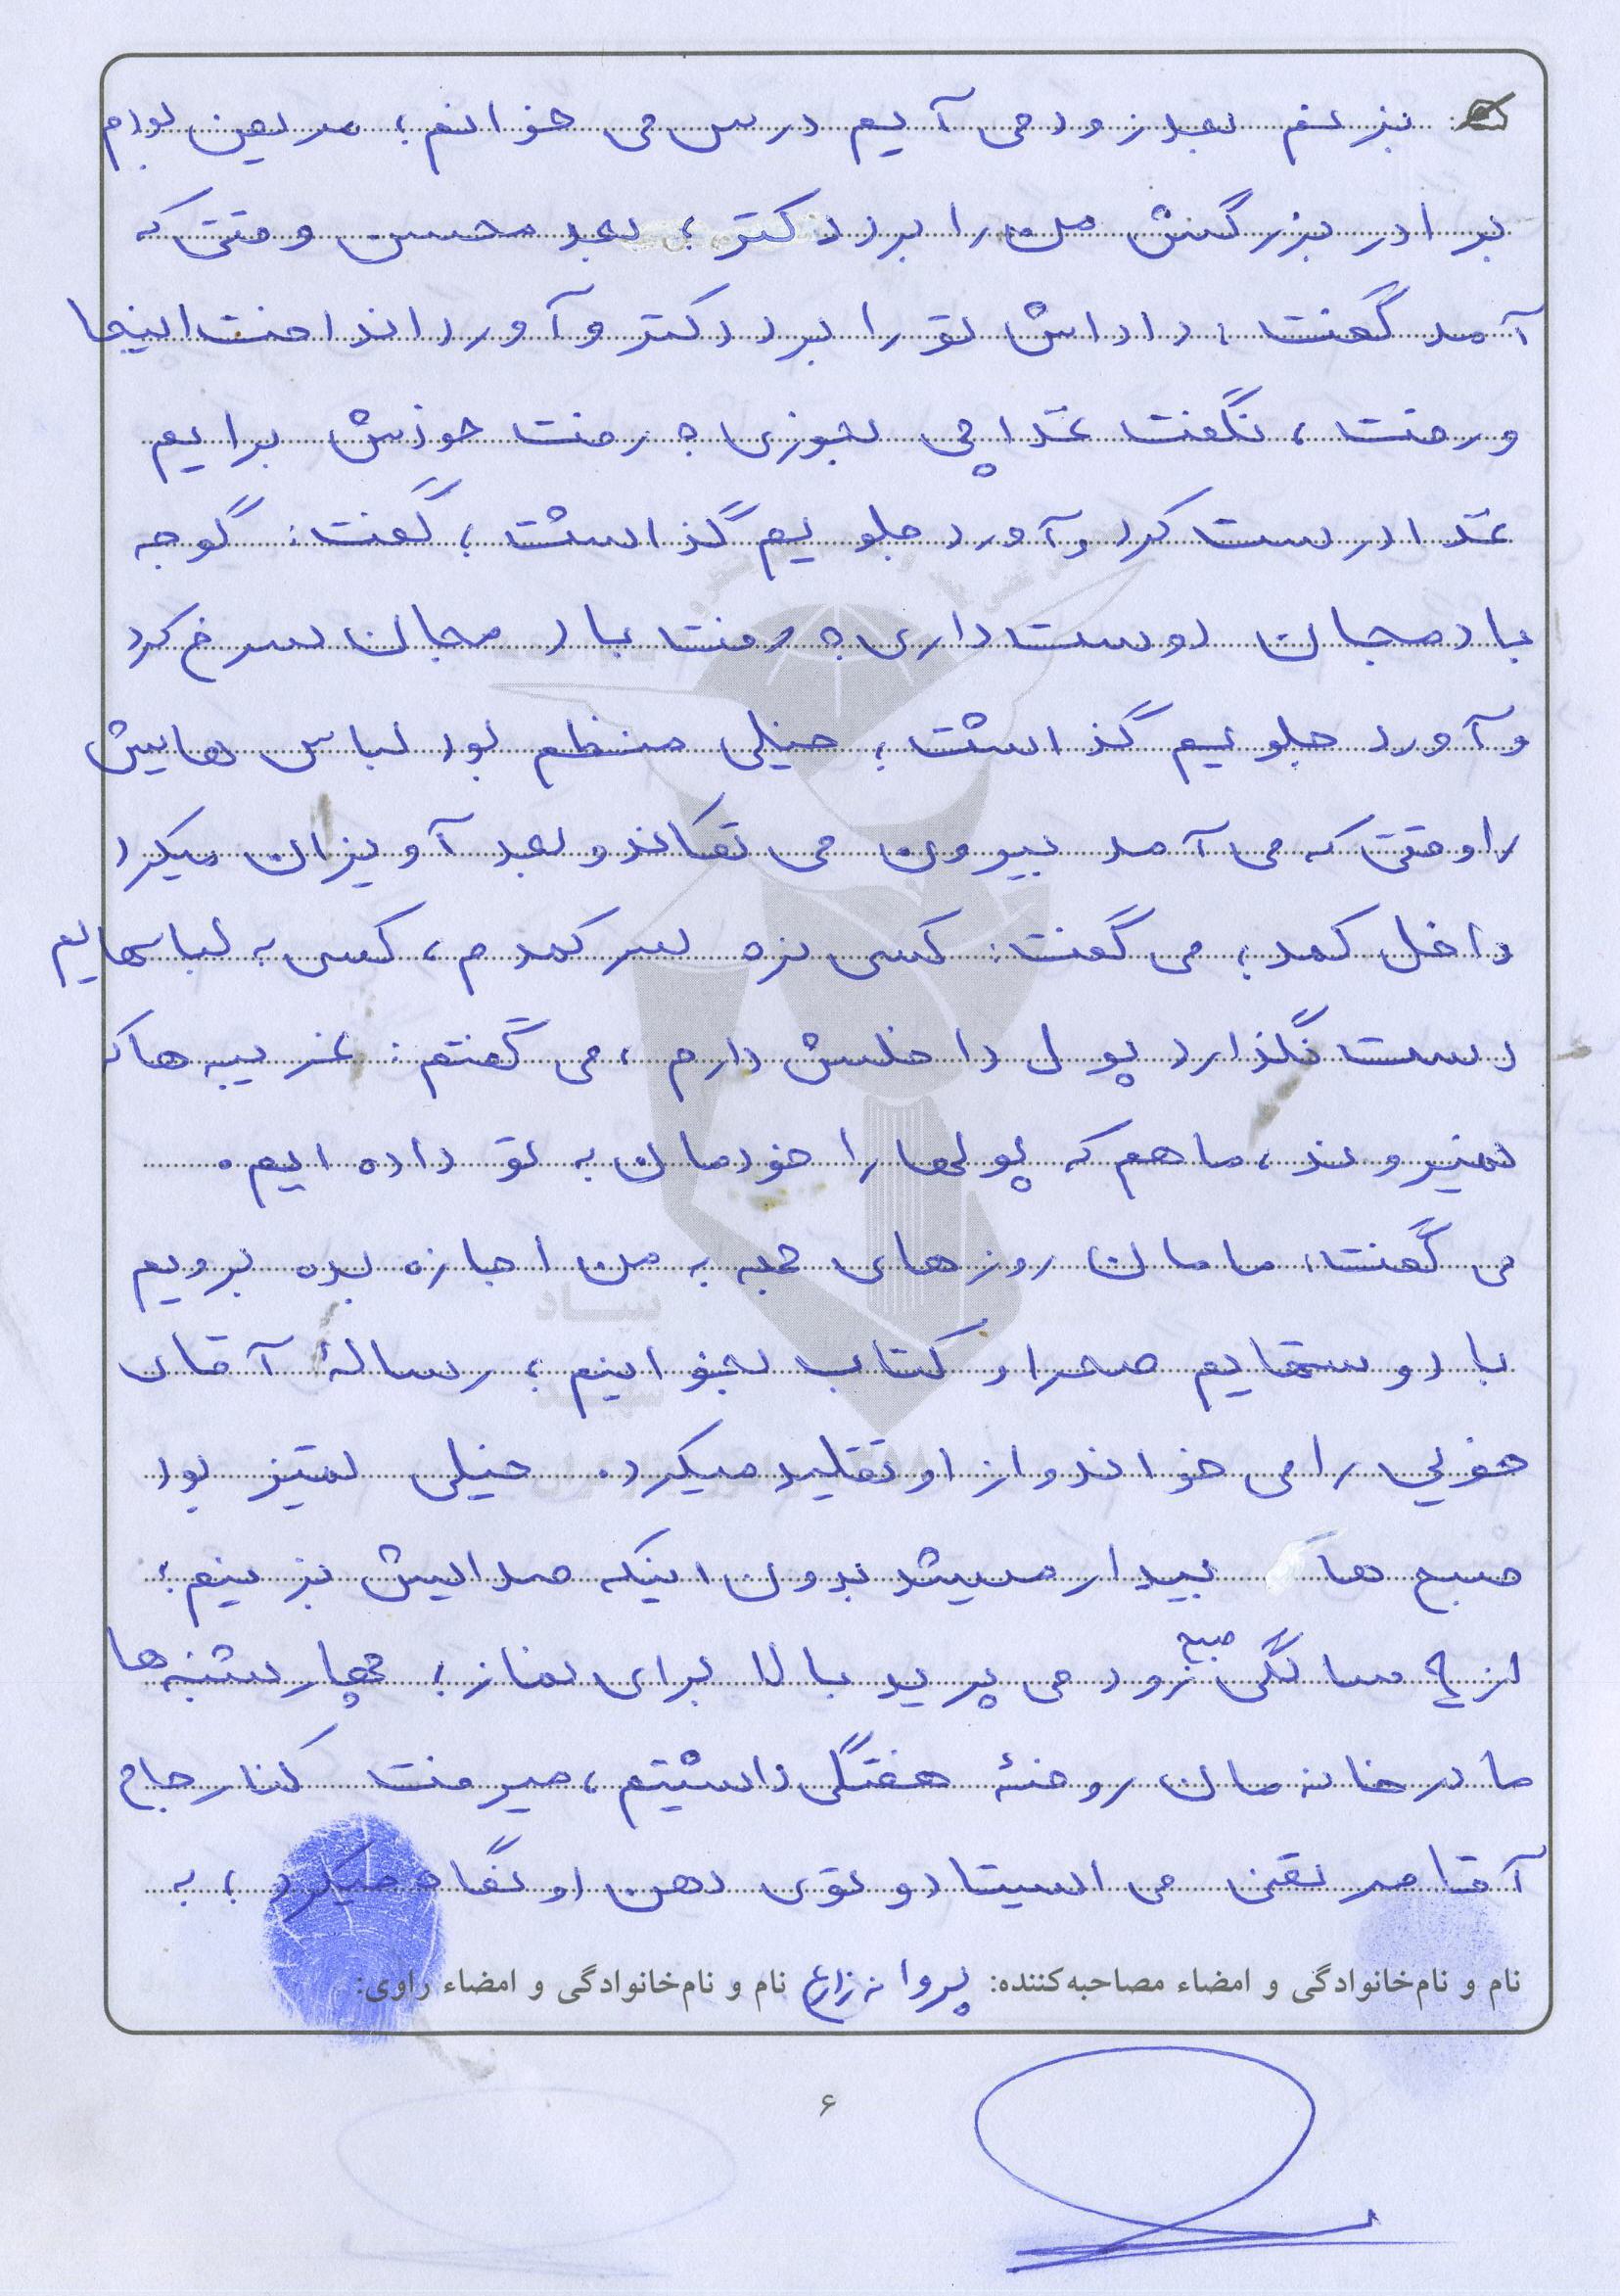 بزنم بعد زود می آیم درس می خوانم؛ مریض بودم
برادر بزرگش من را برد دکتر؛ بعد محسن وقتی که
آمد گفت: داداش تو را برد دکتر و آورد انداخت اینجا
و رفت، نگفت غذا چی بخوری؟ رفت خودش برایم
غذا درست کرد و آورد جلویم گذاشت؛ گفت: گوجه
بادمجان دوست داری؟ رفت بادمجان سرخ کرد
و آورد جلویم گذاشت؛ خیلی منظم بود لباس هایش
را وقتی که می آمد بیرون می تکاند و بعد آویزان میکرد
داخل کمد؛ می گفت: کسی نره سر کمدم، کسی به لباسهایم
دست نگذارد پول داخلش دارم، می گفتم: غریبه ها که
نمیروند، ما هم که پولها را خودمان به تو داده ایم.
می گفت: مامان روزهای جمعه به من اجازه بده برویم
با دوستهایم صحرا و کتاب بخوانیم؛ رسالهٔ آقای
خوئی را می خواند و از او تقلید میکرد. خیلی تمیز بود
صبح ها بیدار میشد بدون اینکه صدایش بزنیم؛
از ۶ سالگی صبح زود می پرید بالا برای نماز؛ چهارشنبه ها
ما در خانه مان روضهٔ هفتگی داشتیم، میرفت کنار حاج
آقا می ایستاد و توی دهن او نگاه میکرد؛ به
نام و نام‌خانوادگی و امضاء مصاحبه‌کننده: پروانه زارع نام و نام‌خانوادگی و امضاء راوی:
۶